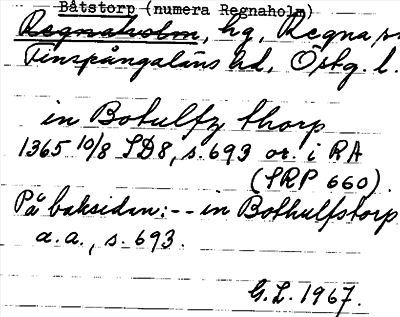 Båtstorp (numera Regnaholm)
Regnaholm, hg, Regna sn
Finspångaläns hd, Östg. l.
in Botulfz thorp
1365 10/8 SD8, s. 693 or. i RA
(SRP 660).
På baksidan: -- in Bothulfstorp
a.a., s. 693.
G.L. 1967.